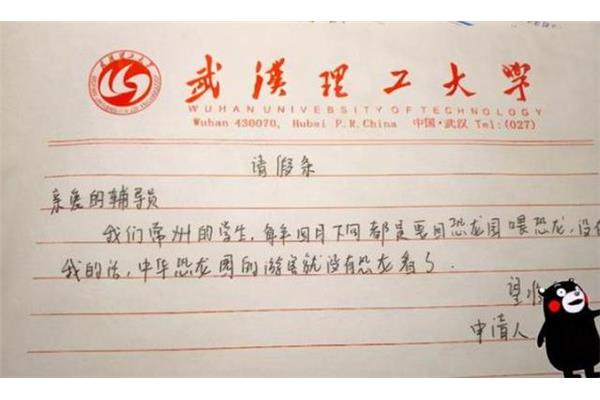 武漢理工大學
WUHAN UNIVERSITY OF TECHNOLOGY
Wuhan 430070, Hubei P.R.China 中国·武汉 Tel:(027)
请假条
亲爱的辅导员
我们常州的学生,每年四月下旬都是要回恐龙园喂恐龙,没有
我的话,中华恐龙园的游客就没有恐龙看了.
望
申请人